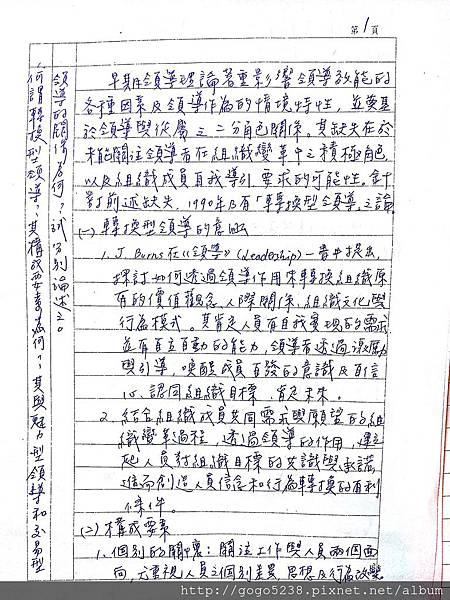 第1頁
何謂轉換型領導?其構成要素為何?其與魅力型領導和交易型
領導的關係為何?試分別論述之。
早期領導理論著重影響領導效能的
各種因素及領導作為的情境特性,並奠基
於領導與從屬之二分角色關係。其缺失在於
未能關注領導者在組織變革中之積極角色
以及組織成員自我導引要求的可能性。針
對前述缺失,1990年乃有「轉換型領導」之論
(一)轉換型領導的意涵
1. J. Burns在《領導》(Leadership)一書中提出,
探討如何透過領導作用來轉換組織原
有的價值觀念、人際關係、組織文化與
行為模式。其肯定人員有自我實現的需求
並有自立自動的能力,領導者透過激勵
與引導,喚醒成員自發的意識及自信
心,認同組織目標、肯定未來。
2. 結合組織成員共同需求與願望的組
織變革過程,透過領導的作用,建立
起人員對組織目標的共識與承諾,
進而創造人員信念和行為轉換的有利
條件。
(二)構成要素
1. 個別的關懷:關注工作與人員兩個面
向,尤重視人員之個別差異,思想及行為改變
http://gogo5238.pixnet.net/album